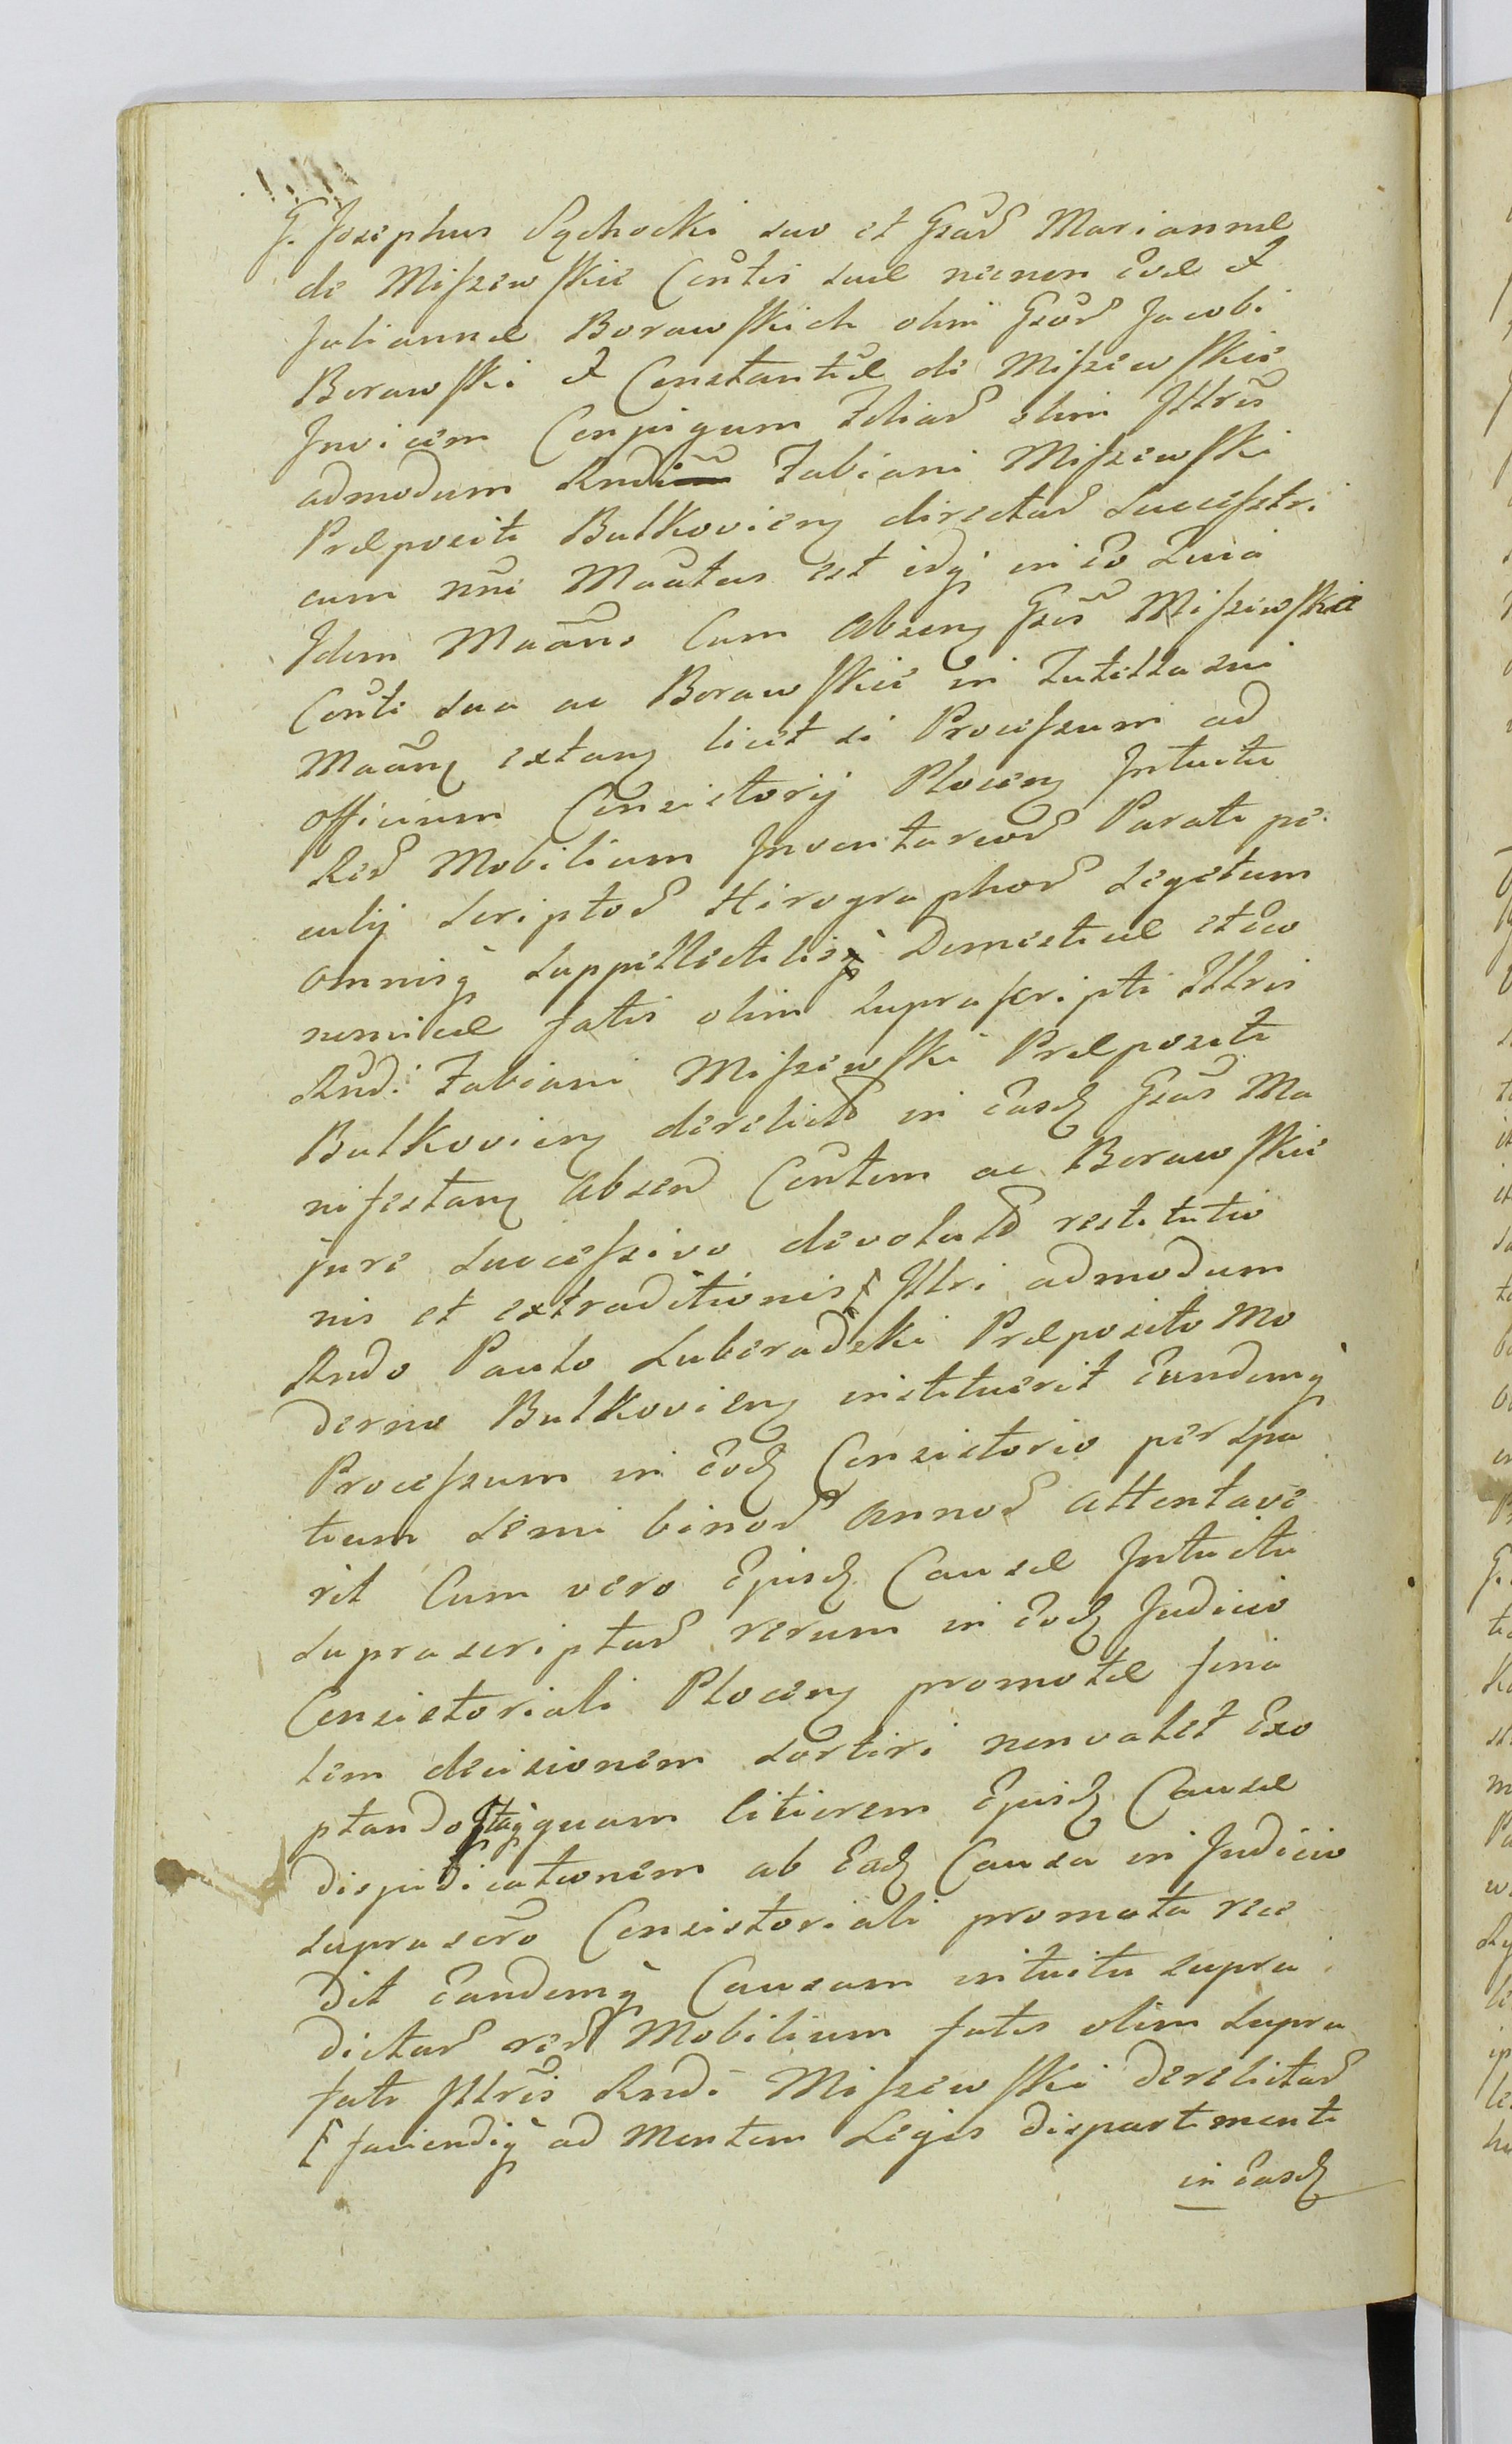 G. Josephus Sychocki suo et Gsar Mariannæ
de Miszewskie Contis suæ necnon Evæ et
Juliannæ Borawskich olim Gsor Jacobi
Borawski et Constantiæ de Miszewskie
Invicem Conjugum Filiar olim Illris
admodum Rndi Fabiani Miszewski
Præpositi Bulkovieng directar Successtri
cum nni Maātus est idq in eo Quia
Idem Maāns Cum Absenq Gsis Miszewska
Conte sua ac Borawskie in Tutella sui
Maānq extanq licet si Processum ad
officium Consistorij Plocenq Intuitu
Rer Mobilium Inventarior Parata pe
culij Scriptor Hirographor Segetum
omnisq suppellectilisq Domesticæ et œco
nomicæ fatis olim suprascripti Illris
Rndi Fabiani Miszewski Præpositi
Bulkovienq derelictar in Easd Gsas Ma
nifestanq Absend Contem ac Borawskie
jure Successivo devolutar restitutio
nis et extraditionis Illri admodum
Rndo Paulo Luberadzki Præposito Mo
derno Bulkovienq instituerit Eundemq
Processum in Eod Consistorio per Spa
tium Semi binor Annor attentave
rit Cum vero Ejusd Causæ Intuitu
Suprascriptar rerum in Eod Judicio
Consistoriali Plocenq promotæ fina
lem decisionem sortiri non valet Exo
ptando Itaq quam litiorem Ejusd Causæ
Disjudicationem ab Ead Causa in Judicio
suprascro Consistoriali promota rece
dit Eandemq Causam intuitu supra
dictar rer Mobilium fatis olim supra
fati Illris Rndi Miszewski Derelictar
faciendiq ad Mentem Legis Dispartimenti
in Easd